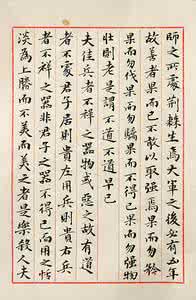 師之所處荊棘生焉大軍之後必有凶年
故善者果而已不敢以取強焉果而勿矜
果而勿伐果而勿驕果而不得已果而勿強物
壯則老是謂不道不道早已
夫佳兵者不祥之器物或惡之故有道
者不處君子居則貴左用兵則貴右兵
者不祥之器非君子之器不得已而用之恬
淡為上勝而不美而美之者是樂殺人夫